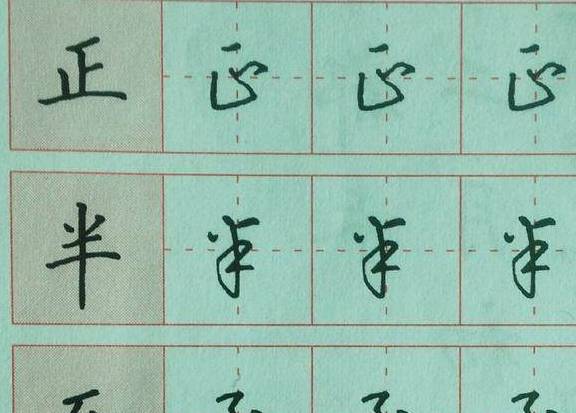 正 正 正 正
半 半 半 半